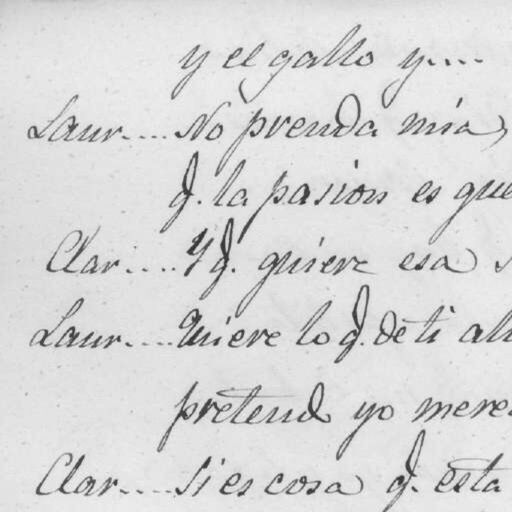 y el gallo y....
Laur.... No prenda mia,
q. la pasion es que
Clar.... Y q. quiere esa
Laur.... Quiere lo q. de ti
pretend yo
Clar.... Si es cosa q. esta